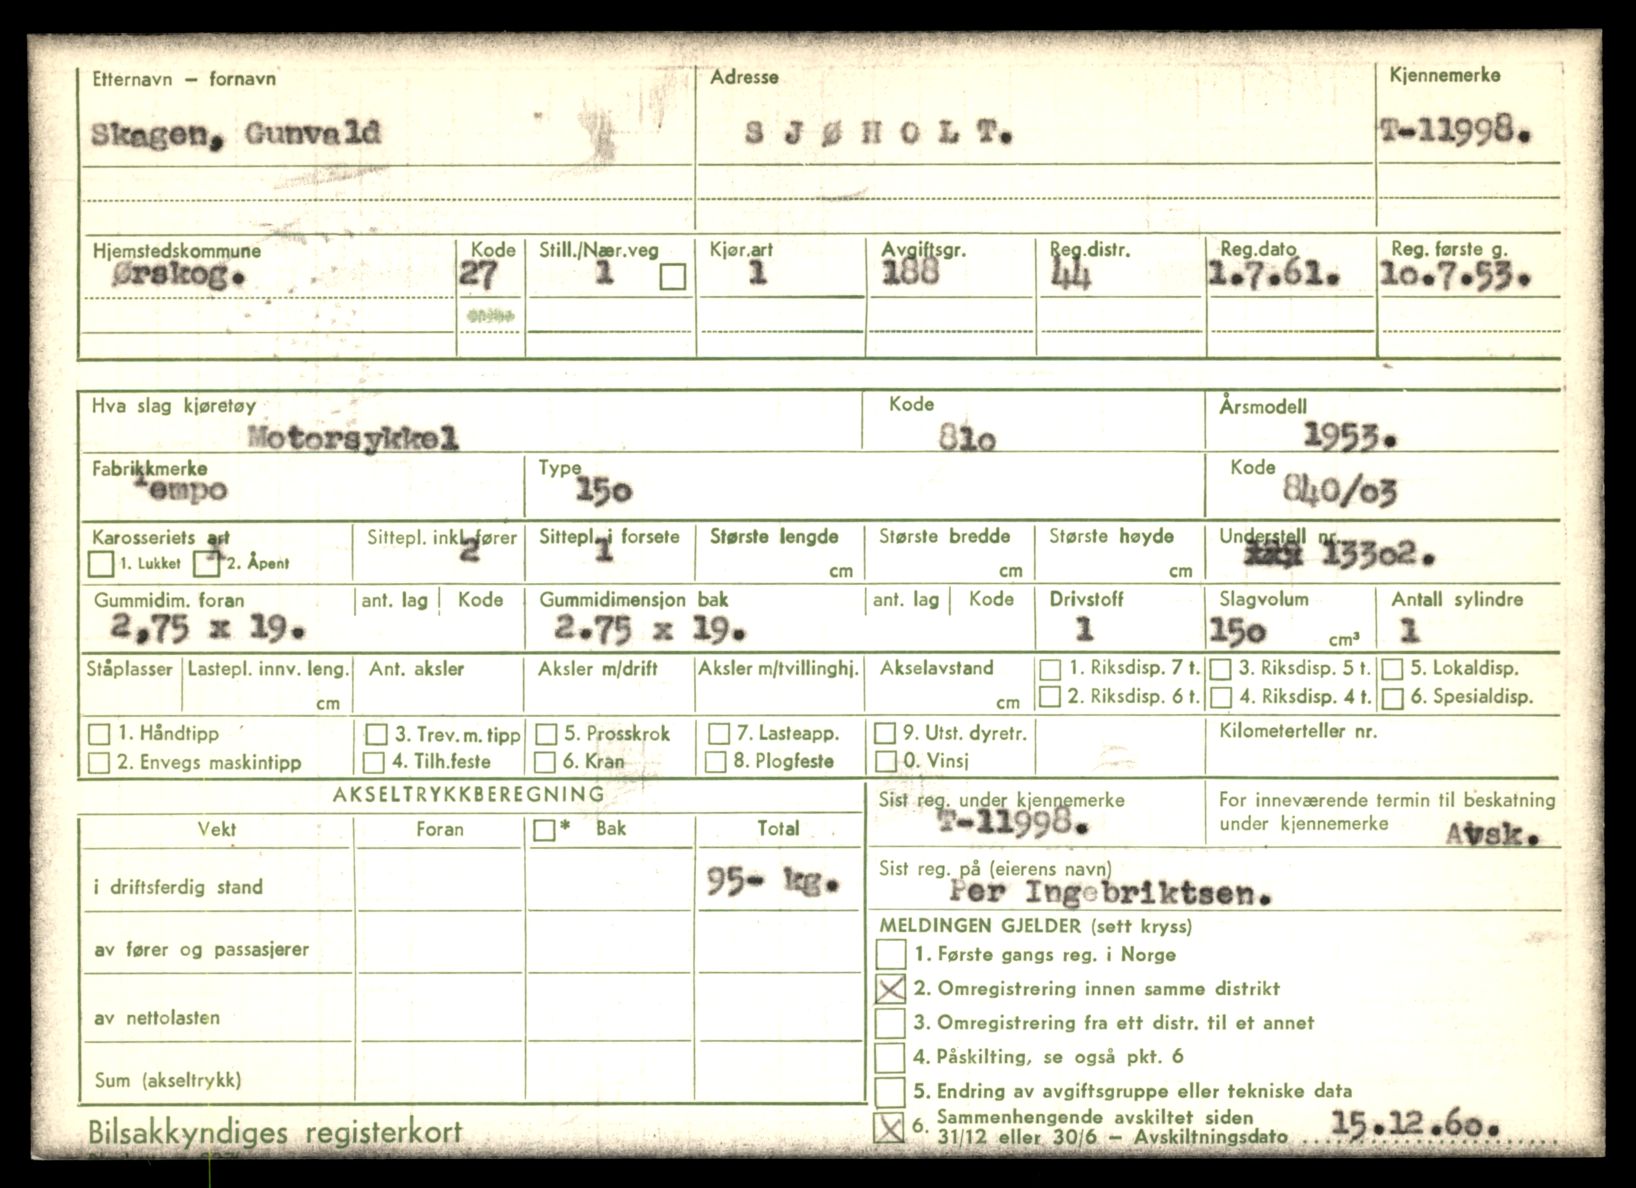 Etternavn – fornavn Adresse Kjennemerke
Skagen, Gunvald S J Ø H O L T. T-11998.
Hjemstedskommune Kode Still./Nær.veg Kjør.art Avgiftsgr. Reg.distr. Reg.dato Reg. første g.
Ørskog. 27 1 1 188 44 1.7.61. 1o.7.53.
Hva slag kjøretøy Kode Årsmodell
Motorsykkel 81o 1953.
Fabrikkmerke Type Kode
Tempo 15o 840/o3
Karosseriets art Sittepl. inkl. fører Sittepl. i forsete Største lengde Største bredde Største høyde Understell nr.
1. Lukket X 2. Åpent 2 1 cm cm cm xxx 133o2.
Gummidim. foran ant. lag Kode Gummidimensjon bak ant. lag Kode Drivstoff Slagvolum Antall sylindre
2,75 x 19. 2.75 x 19. 1 15o cm³ 1
Ståplasser Lastepl. innv. leng. Ant. aksler Aksler m/drift Aksler m/tvillinghj. Akselavstand 1. Riksdisp. 7 t. 3. Riksdisp. 5 t. 5. Lokaldisp.
cm cm 2. Riksdisp. 6 t. 4. Riksdisp. 4 t. 6. Spesialdisp.
1. Håndtipp 3. Trev. m. tipp 5. Prosskrok 7. Lasteapp. 9. Utst. dyretr. Kilometerteller nr.
2. Envegs maskintipp 4. Tilh.feste 6. Kran 8. Plogfeste 0. Vinsj
AKSELTRYKKBEREGNING
Vekt Foran * Bak Total
i driftsferdig stand 95- kg.
av fører og passasjerer
av nettolasten
Sum (akseltrykk)
Bilsakkyndiges registerkort
Sist reg. under kjennemerke
T-11998.
For inneværende termin til beskatning
under kjennemerke Avsk.
Sist reg. på (eierens navn)
Per Ingebriktsen.
MELDINGEN GJELDER (sett kryss)
1. Første gangs reg. i Norge
X 2. Omregistrering innen samme distrikt
3. Omregistrering fra ett distr. til et annet
4. Påskilting, se også pkt. 6
5. Endring av avgiftsgruppe eller tekniske data
X 6. Sammenhengende avskiltet siden
31/12 eller 30/6 – Avskiltningsdato 15.12.6o.